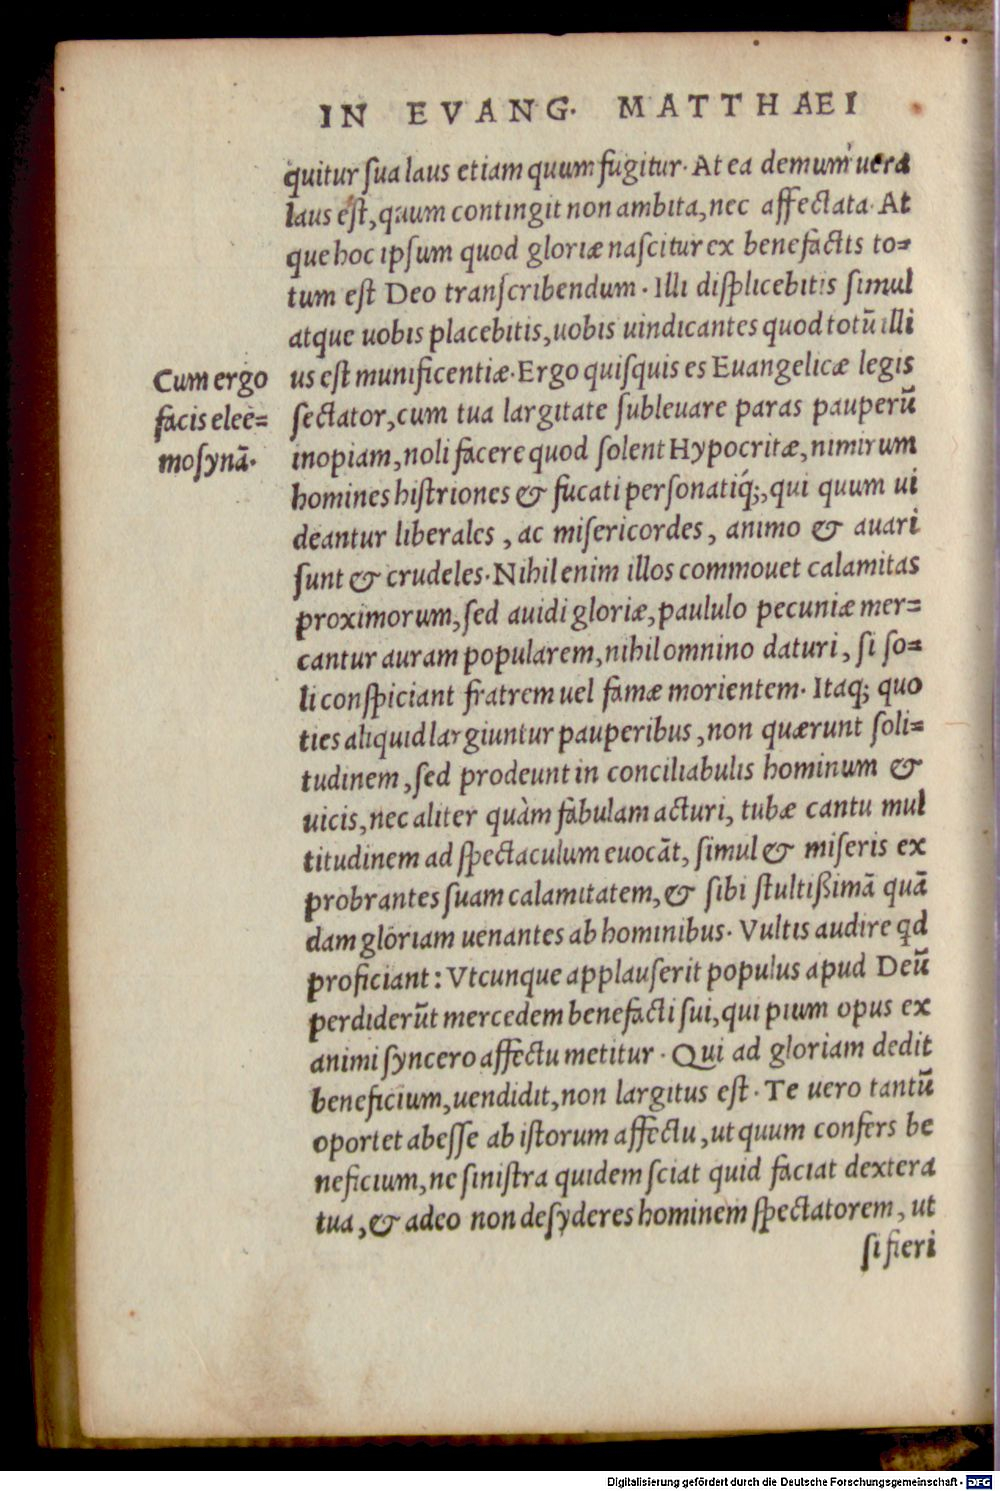 IN EVANG. MATTHAEI
quitur ſua laus etiam quum fugitur. At ea demum uera
laus eſt, quum contingit non ambita, nec affectata. At
que hoc ipſum quod gloriæ naſcitur ex benefactis to=
tum eſt Deo tranſcribendum. Illi diſplicebitis ſimul
atque uobis placebitis, uobis uindicantes quod totũ illi
us eſt munificentiæ. Ergo quiſquis es Euangelicæ legis
ſectator, cum tua largitate ſubleuare paras pauperũ
inopiam, noli facere quod ſolent Hypocritæ, nimirum
homines hiſtriones & fucati perſonatiq́;, qui quum ui
deantur liberales, ac miſericordes, animo & auari
ſunt & crudeles. Nihil enim illos commouet calamitas
proximorum, ſed auidi gloriæ, paululo pecuniæ mer=
cantur auram popularem, nihil omnino daturi, ſi ſo=
li conſpiciant fratrem uel famæ morientem. Itaq; quo
ties aliquid largiuntur pauperibus, non quærunt ſoli=
tudinem, ſed prodeunt in conciliabulis hominum &
uicis, nec aliter quàm fabulam acturi, tubæ cantu mul
titudinem ad ſpectaculum euocãt, ſimul & miſeris ex
probrantes ſuam calamitatem, & ſibi ſtultißimã quã
dam gloriam uenantes ab hominibus. Vultis audire qd
proficiant: Vtcunque applauſerit populus apud Deũ
perdiderũt mercedem benefacti ſui, qui pium opus ex
animi ſyncero affectu metitur. Qui ad gloriam dedit
beneficium, uendidit, non largitus eſt. Te uero tantũ
oportet abeſſe ab iſtorum affectu, ut quum confers be
neficium, ne ſiniſtra quidem ſciat quid faciat dextera
tua, & adeo non deſyderes hominem ſpectatorem, ut
ſi fieri
Cum ergo
facis elee=
moſynã.
Digitalisierung gefördert durch die Deutsche Forschungsgemeinschaft - DFG